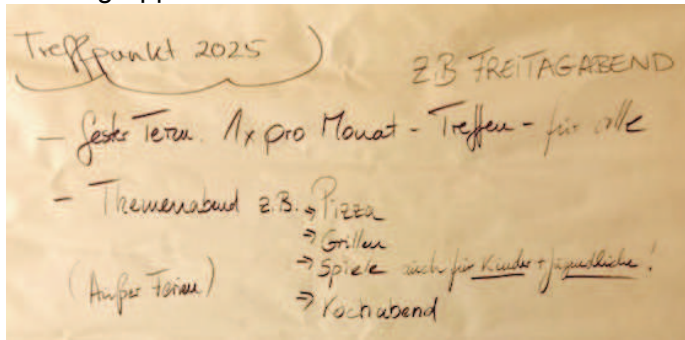 Treffpunkt 2025
Z.B FREITAGABEND
- fester Term. 1x pro Monat - Treffen - für alle
- Themenabend z.B. → Pizza
→ Grillen
→ Spiele auch für Kinder + Jugendliche!
(Außer Ferien)
→ Kochabend